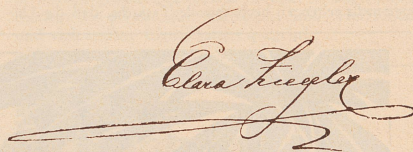 Clara Ziegler